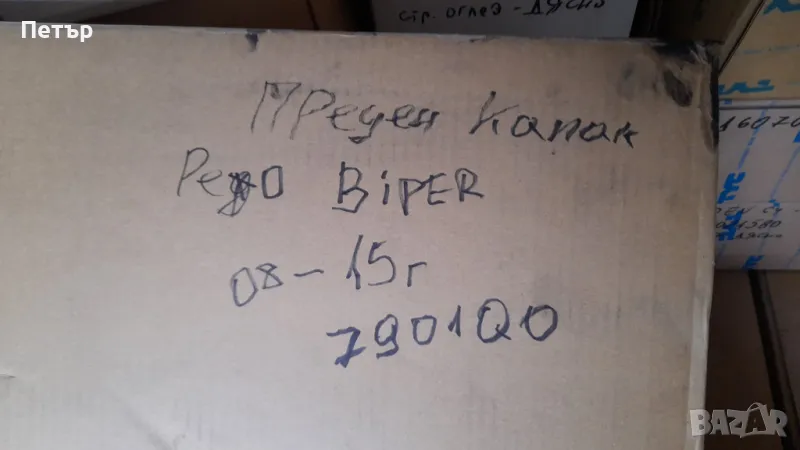 Петър
стр. оглед - Дясно
Преден Капак
Рено BiPER
08-15г
7901Q0
1607
1580
BAZAR